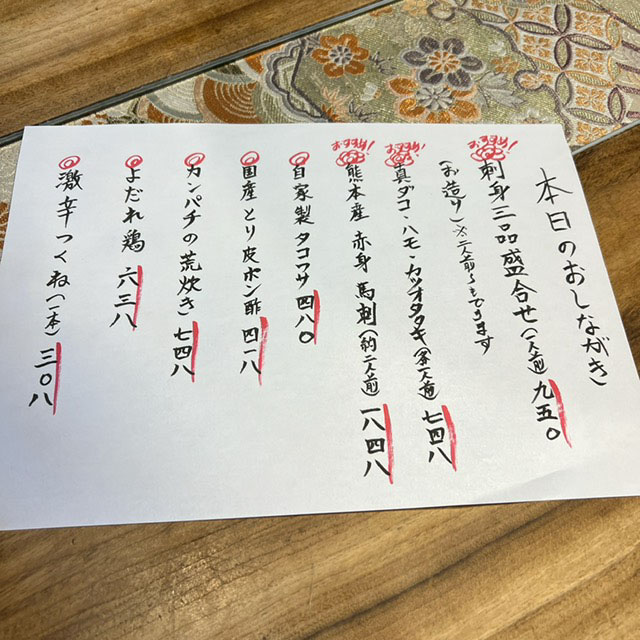 本日のおしながき
おすすめ!
刺身三品盛合せ(一人前)九五〇
(お造り)※二人前よりできます
おすすめ!
真ダコ・ハモ・カツオタタキ(各一人前)七四八
おすすめ!
熊本産 赤身 馬刺(約二人前)一八四八
自家製タコワサ 四八〇
国産とり皮ポン酢 四一八
カンパチの荒炊き 七四八
よだれ鶏 六三八
激辛つくね(一本)三〇八